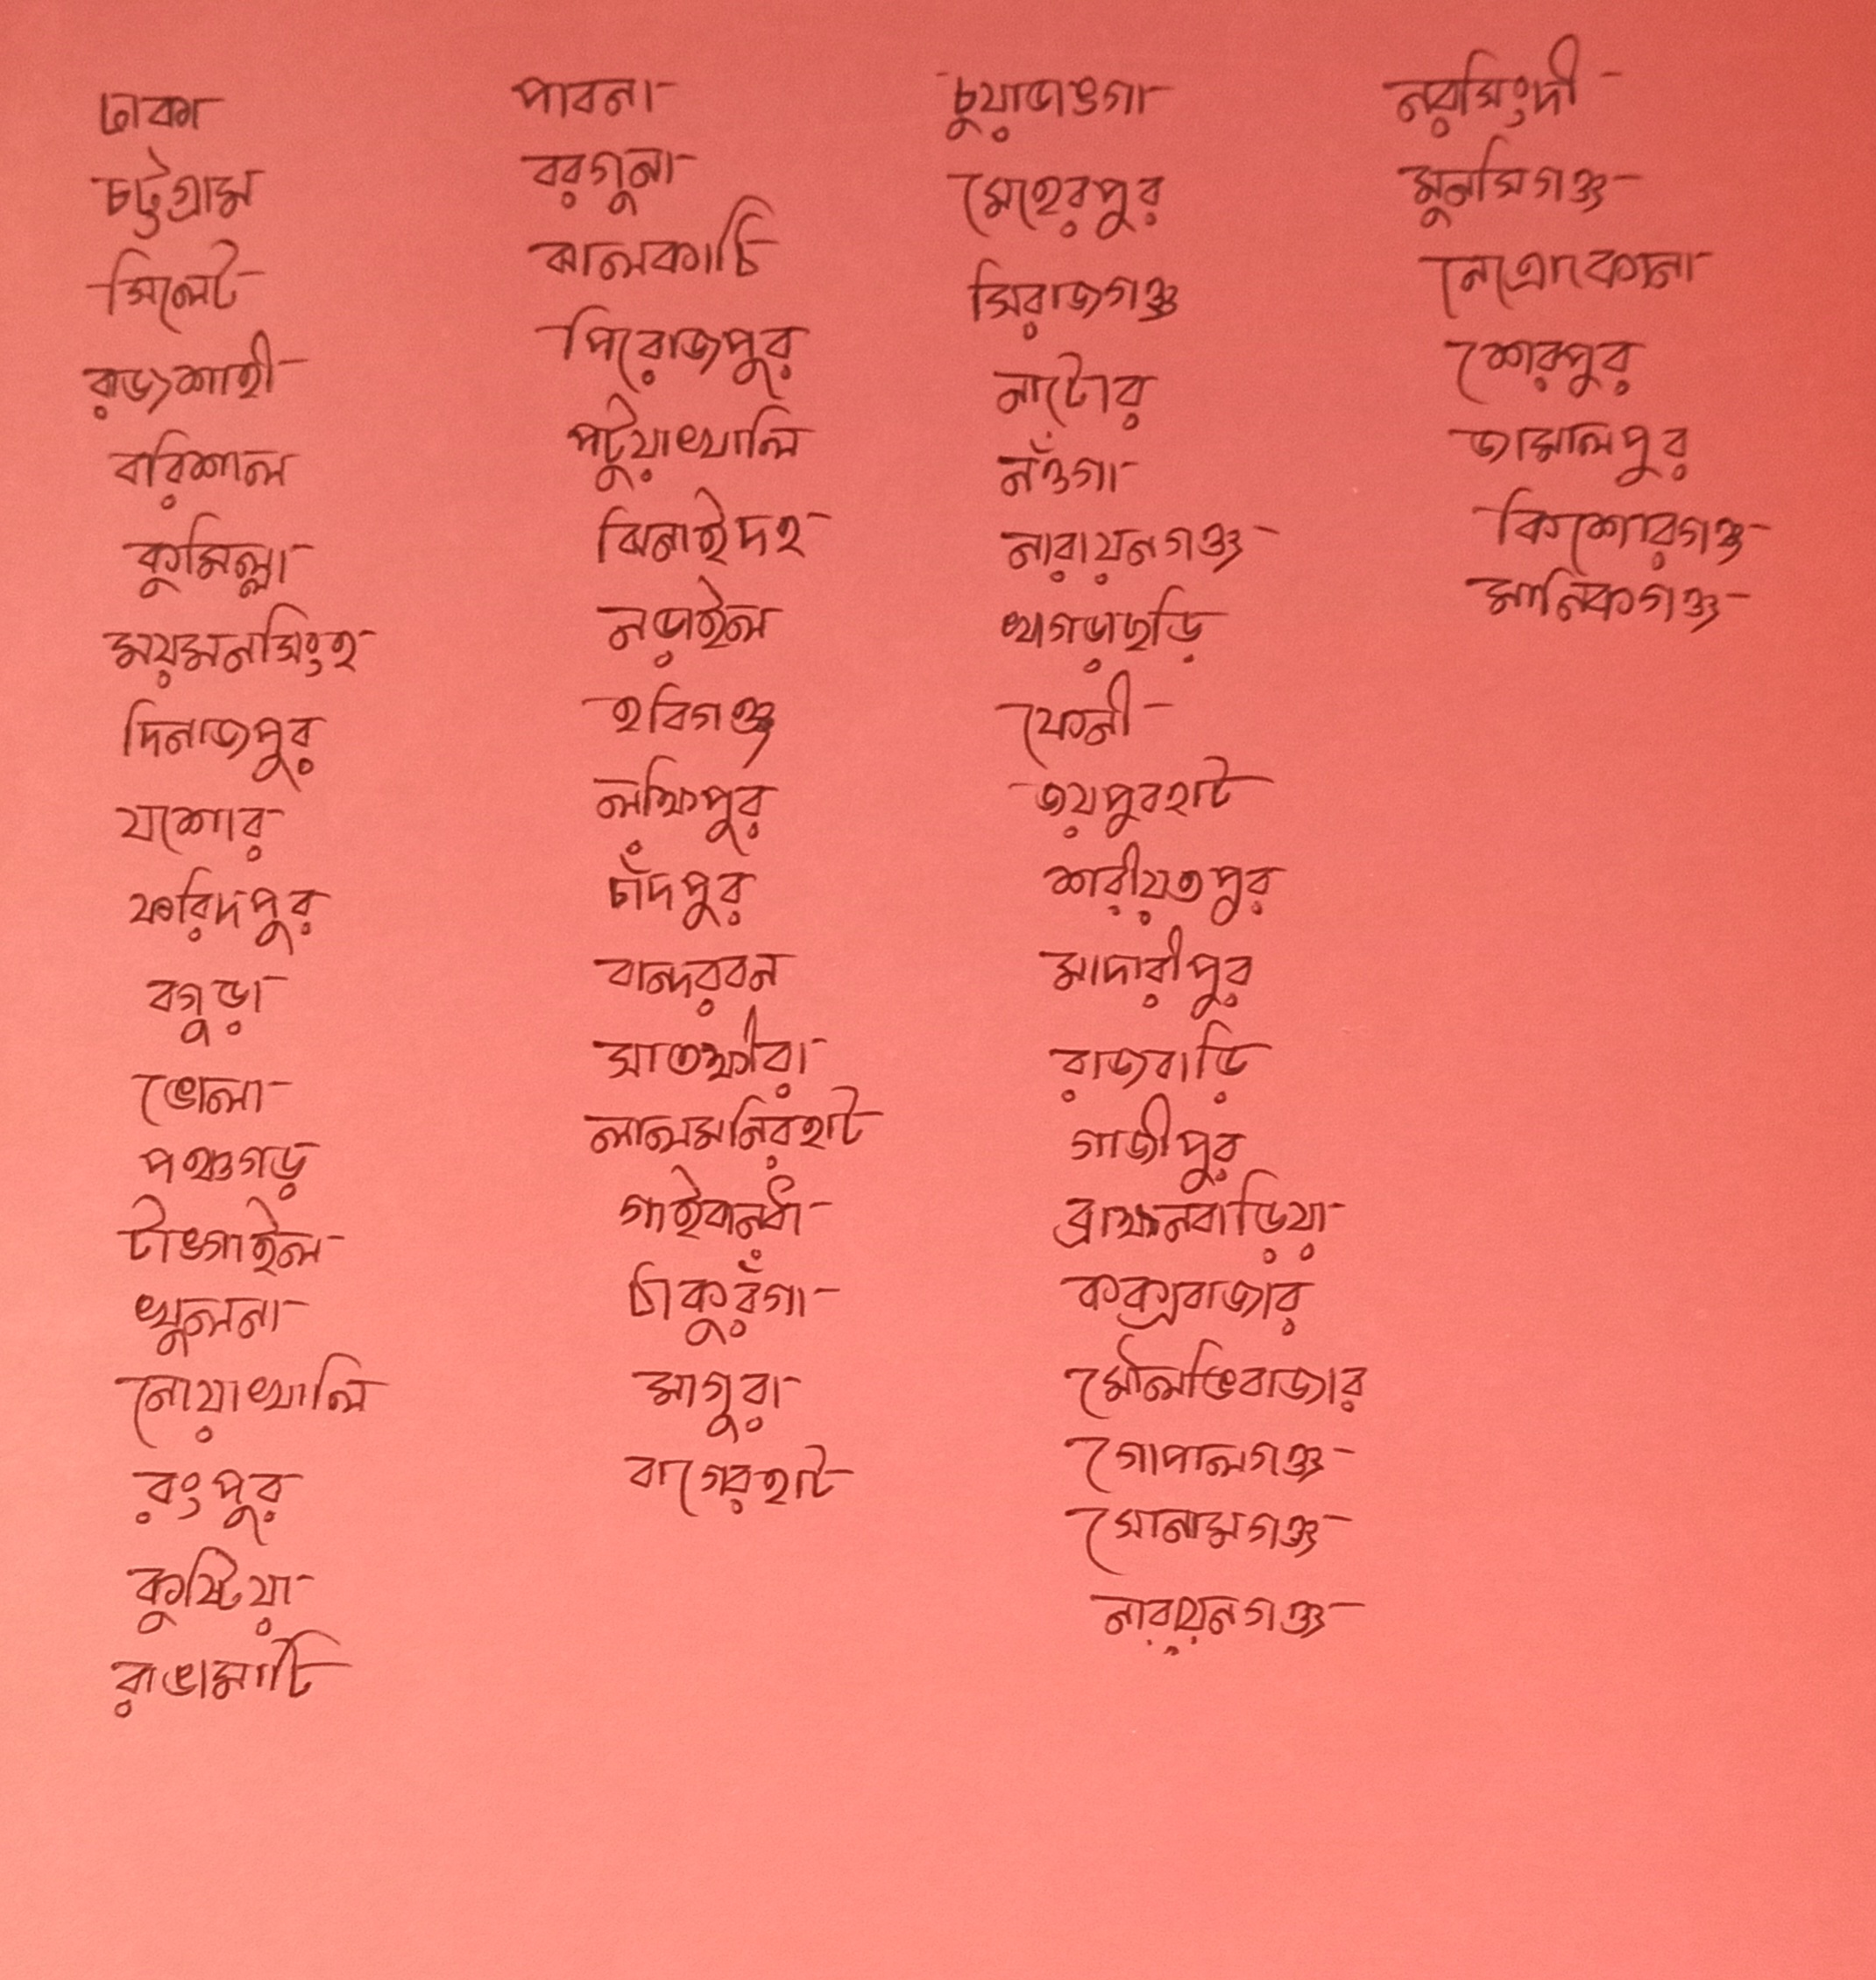 ঢাকা
চট্টগ্রাম
সিলেট
রাজশাহী
বরিশাল
কুমিল্লা
ময়মনসিংহ
দিনাজপুর
যশোর
ফরিদপুর
বগুড়া
ভোলা
পঞ্চগড়
টাঙ্গাইল
খুলনা
নোয়াখালি
রংপুর
কুষ্টিয়া
রাঙামাটি
পাবনা
বরগুনা
ঝালকাঠি
পিরোজপুর
পটুয়াখালি
ঝিনাইদহ
নড়াইল
হবিগঞ্জ
লক্ষিপুর
চাঁদপুর
বান্দরবন
সাতক্ষীরা
লালমনিরহাট
গাইবান্ধা
ঠাকুরগাঁ
মাগুরা
বাগেরহাট
চুয়াডাঙগা
মেহেরপুর
সিরাজগঞ্জ
নাটোর
নওঁগা
নারায়নগঞ্জ
খাগড়াছড়ি
ফেনী
জয়পুরহাট
শরীয়তপুর
মাদারীপুর
রাজবাড়ি
গাজীপুর
ব্রাহ্মনবাড়িয়া
কক্সবাজার
মৌলভিবাজার
গোপালগঞ্জ
সোনামগঞ্জ
নারায়নগঞ্জ
নরসিংদী
মুনসিগঞ্জ
নেত্রোকোনা
শেরপুর
জামালপুর
কিশোরগঞ্জ
মানিকগঞ্জ